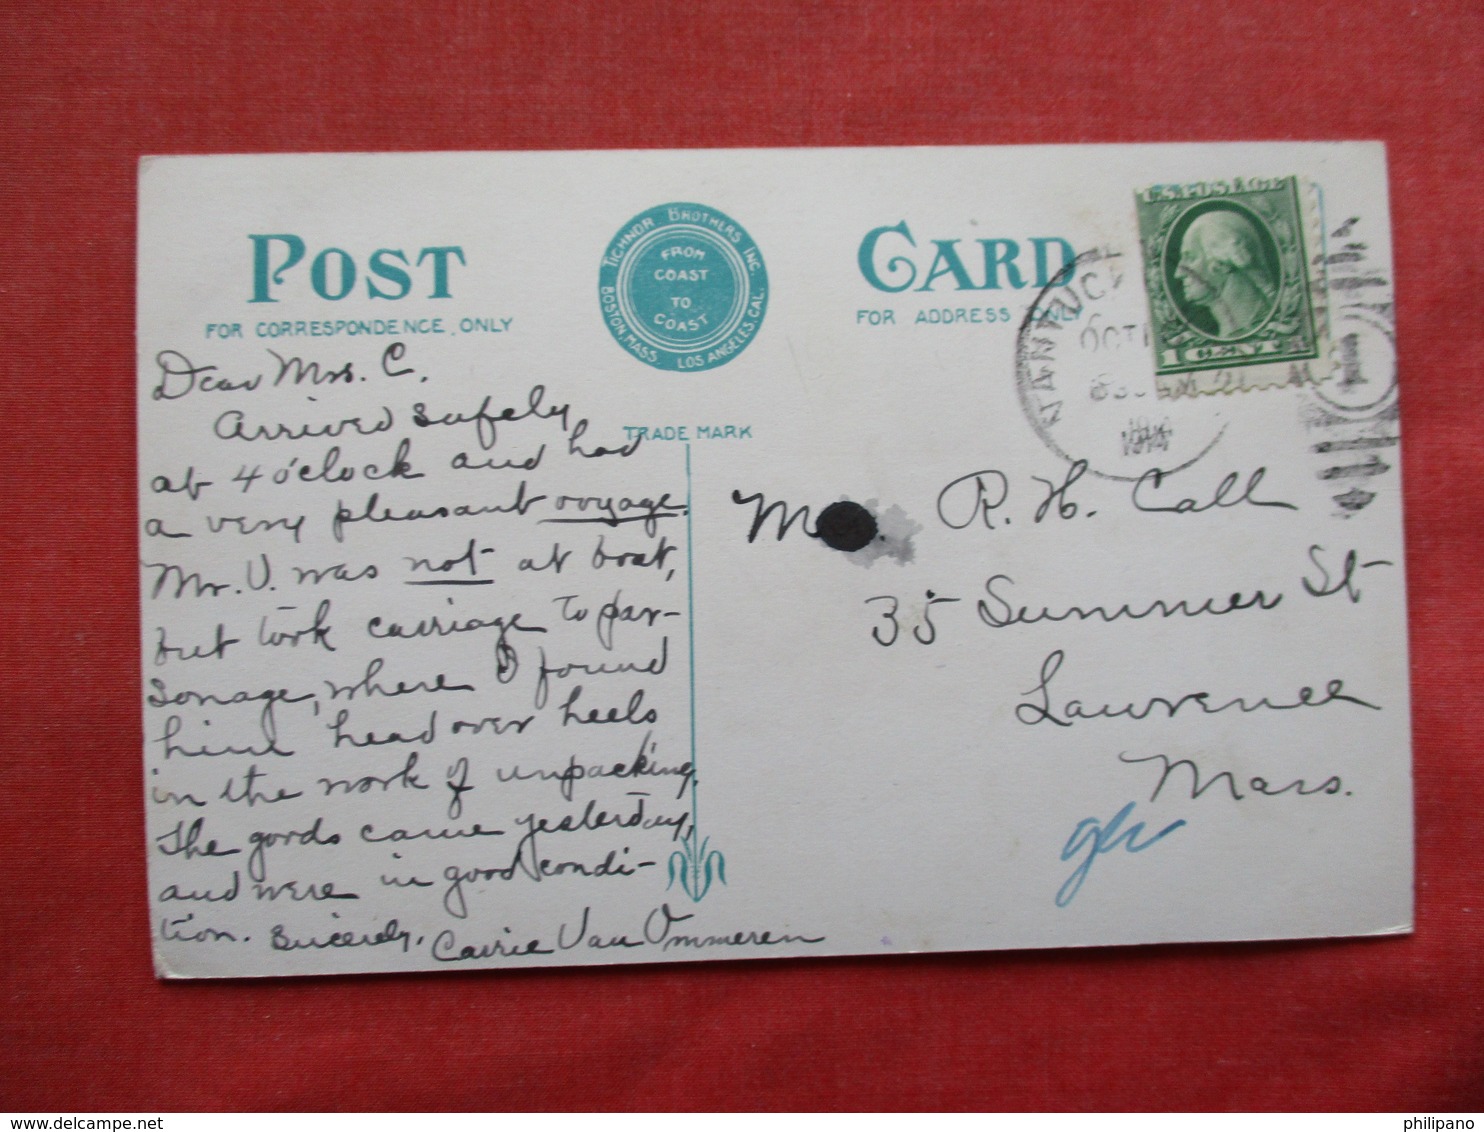 POST
CARD
FOR CORRESPONDENCE ONLY
FOR ADDRESS ONLY
TICHNOR BROTHERS INC.
BOSTON, MASS. LOS ANGELES, CAL.
FROM
COAST
TO
COAST
TRADE MARK
U.S. POSTAGE
1 CENT 1
NANTUCK
OCT
1914
Dear Mrs. C.
Arrived safely
at 4 o'clock and had
a very pleasant voyage.
Mr. V. was not at boat,
but took carriage to par-
sonage, where I found
him head over heels
in the work of unpacking.
The goods came yesterday,
and were in good condi-
tion. Sincerely, Carrie Van Ommeren
R. H. Call
35 Summer St
Lawrence
Mass.
philipano